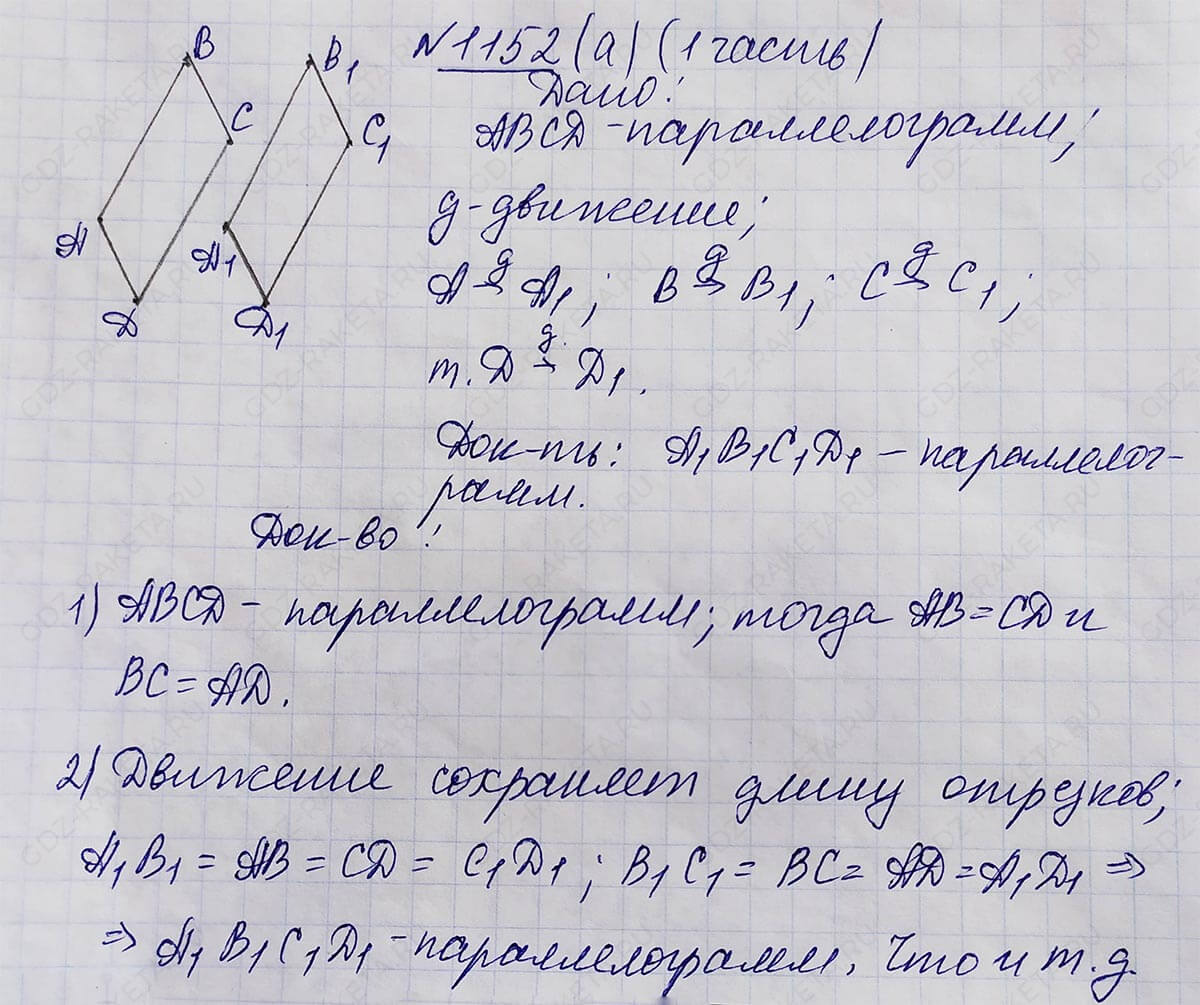 B
B₁
C
C₁
A
A₁
Д
Д₁
N1152(а) (1 часть)
Дано:
АВСД - параллелограмм;
g-движение;
A g→ A₁; B g→ B₁; C g→ C₁;
т. Д g→ Д₁.
Док-ть: A₁B₁C₁Д₁ – параллелог-
рамм.
Док-во:
1) АВСД – параллелограмм; тогда АВ=СД и
ВС=АД.
2) Движение сохраняет длину отрезков;
A₁B₁ = AB = CД = C₁Д₁; B₁C₁ = BC = AД = A₁Д₁ ⇒
⇒ A₁B₁C₁Д₁ - параллелограмм. Что и т.д.
GDZ-RAKETA.RU